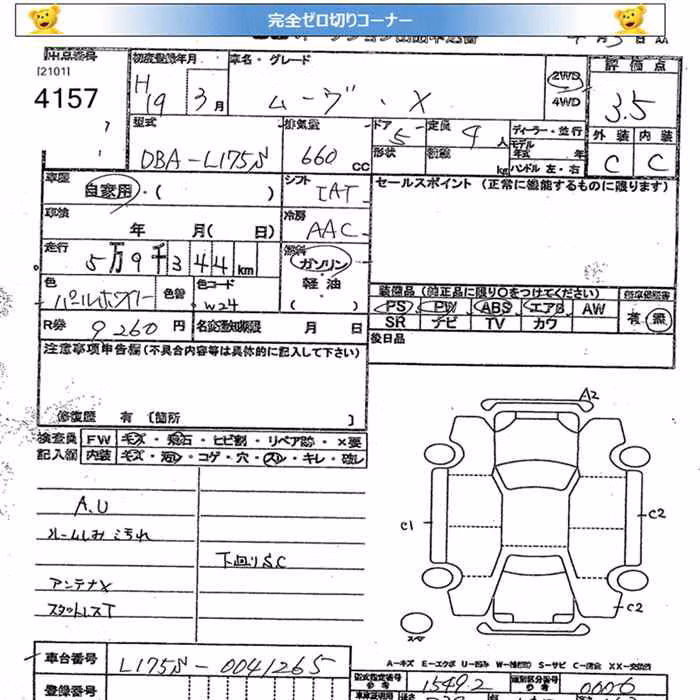 完全ゼロ切りコーナー
出品番号 初度登録年月 車名・グレード 2WD 4WD 評価点
[2101] 4157
H19 3月 ムーヴ・X 3.5
型式 排気量 ドア 5 定員 4人 ディーラー・並行 外装 内装
DBA-L175S 660 CC 形状 kg モデル年式 年 ハンドル 左・右 C C
車歴 自家用・( ) シフト IAT セールスポイント (正常に機能するものに限ります)
車検 年 月(日) 冷房 AAC
走行 5万9千344km 燃料 ガソリン 軽油 ( )
色 パールホワイト 色替 色コード W24
装備品 (純正品に限り○をつけてください)
PS PW ABS エアB AW 有 無
SR ナビ TV カワ
R券 9260円 名変期限 月 日 後日品
注意事項申告欄(不具合内容等は具体的に記入して下さい)
修復歴 有 [箇所 ]
検査員 FW キズ・飛石・ヒビ割・リペア跡・×要
記入欄 内装 キズ・汚レ・コゲ・穴・スレ・キレ・破レ
A2
A.U
ルームしみ汚れ
C1 C2
下回りSC
アンテナX
スタットレスT
C2
スペア
A-キズ E-エクボ U-凹み W-(補修) S-サビ C-腐食 XX-交換済
車台番号 L175S-0041265 型式指定番号 参考 15492 類別区分番号 参考 0006
登録番号